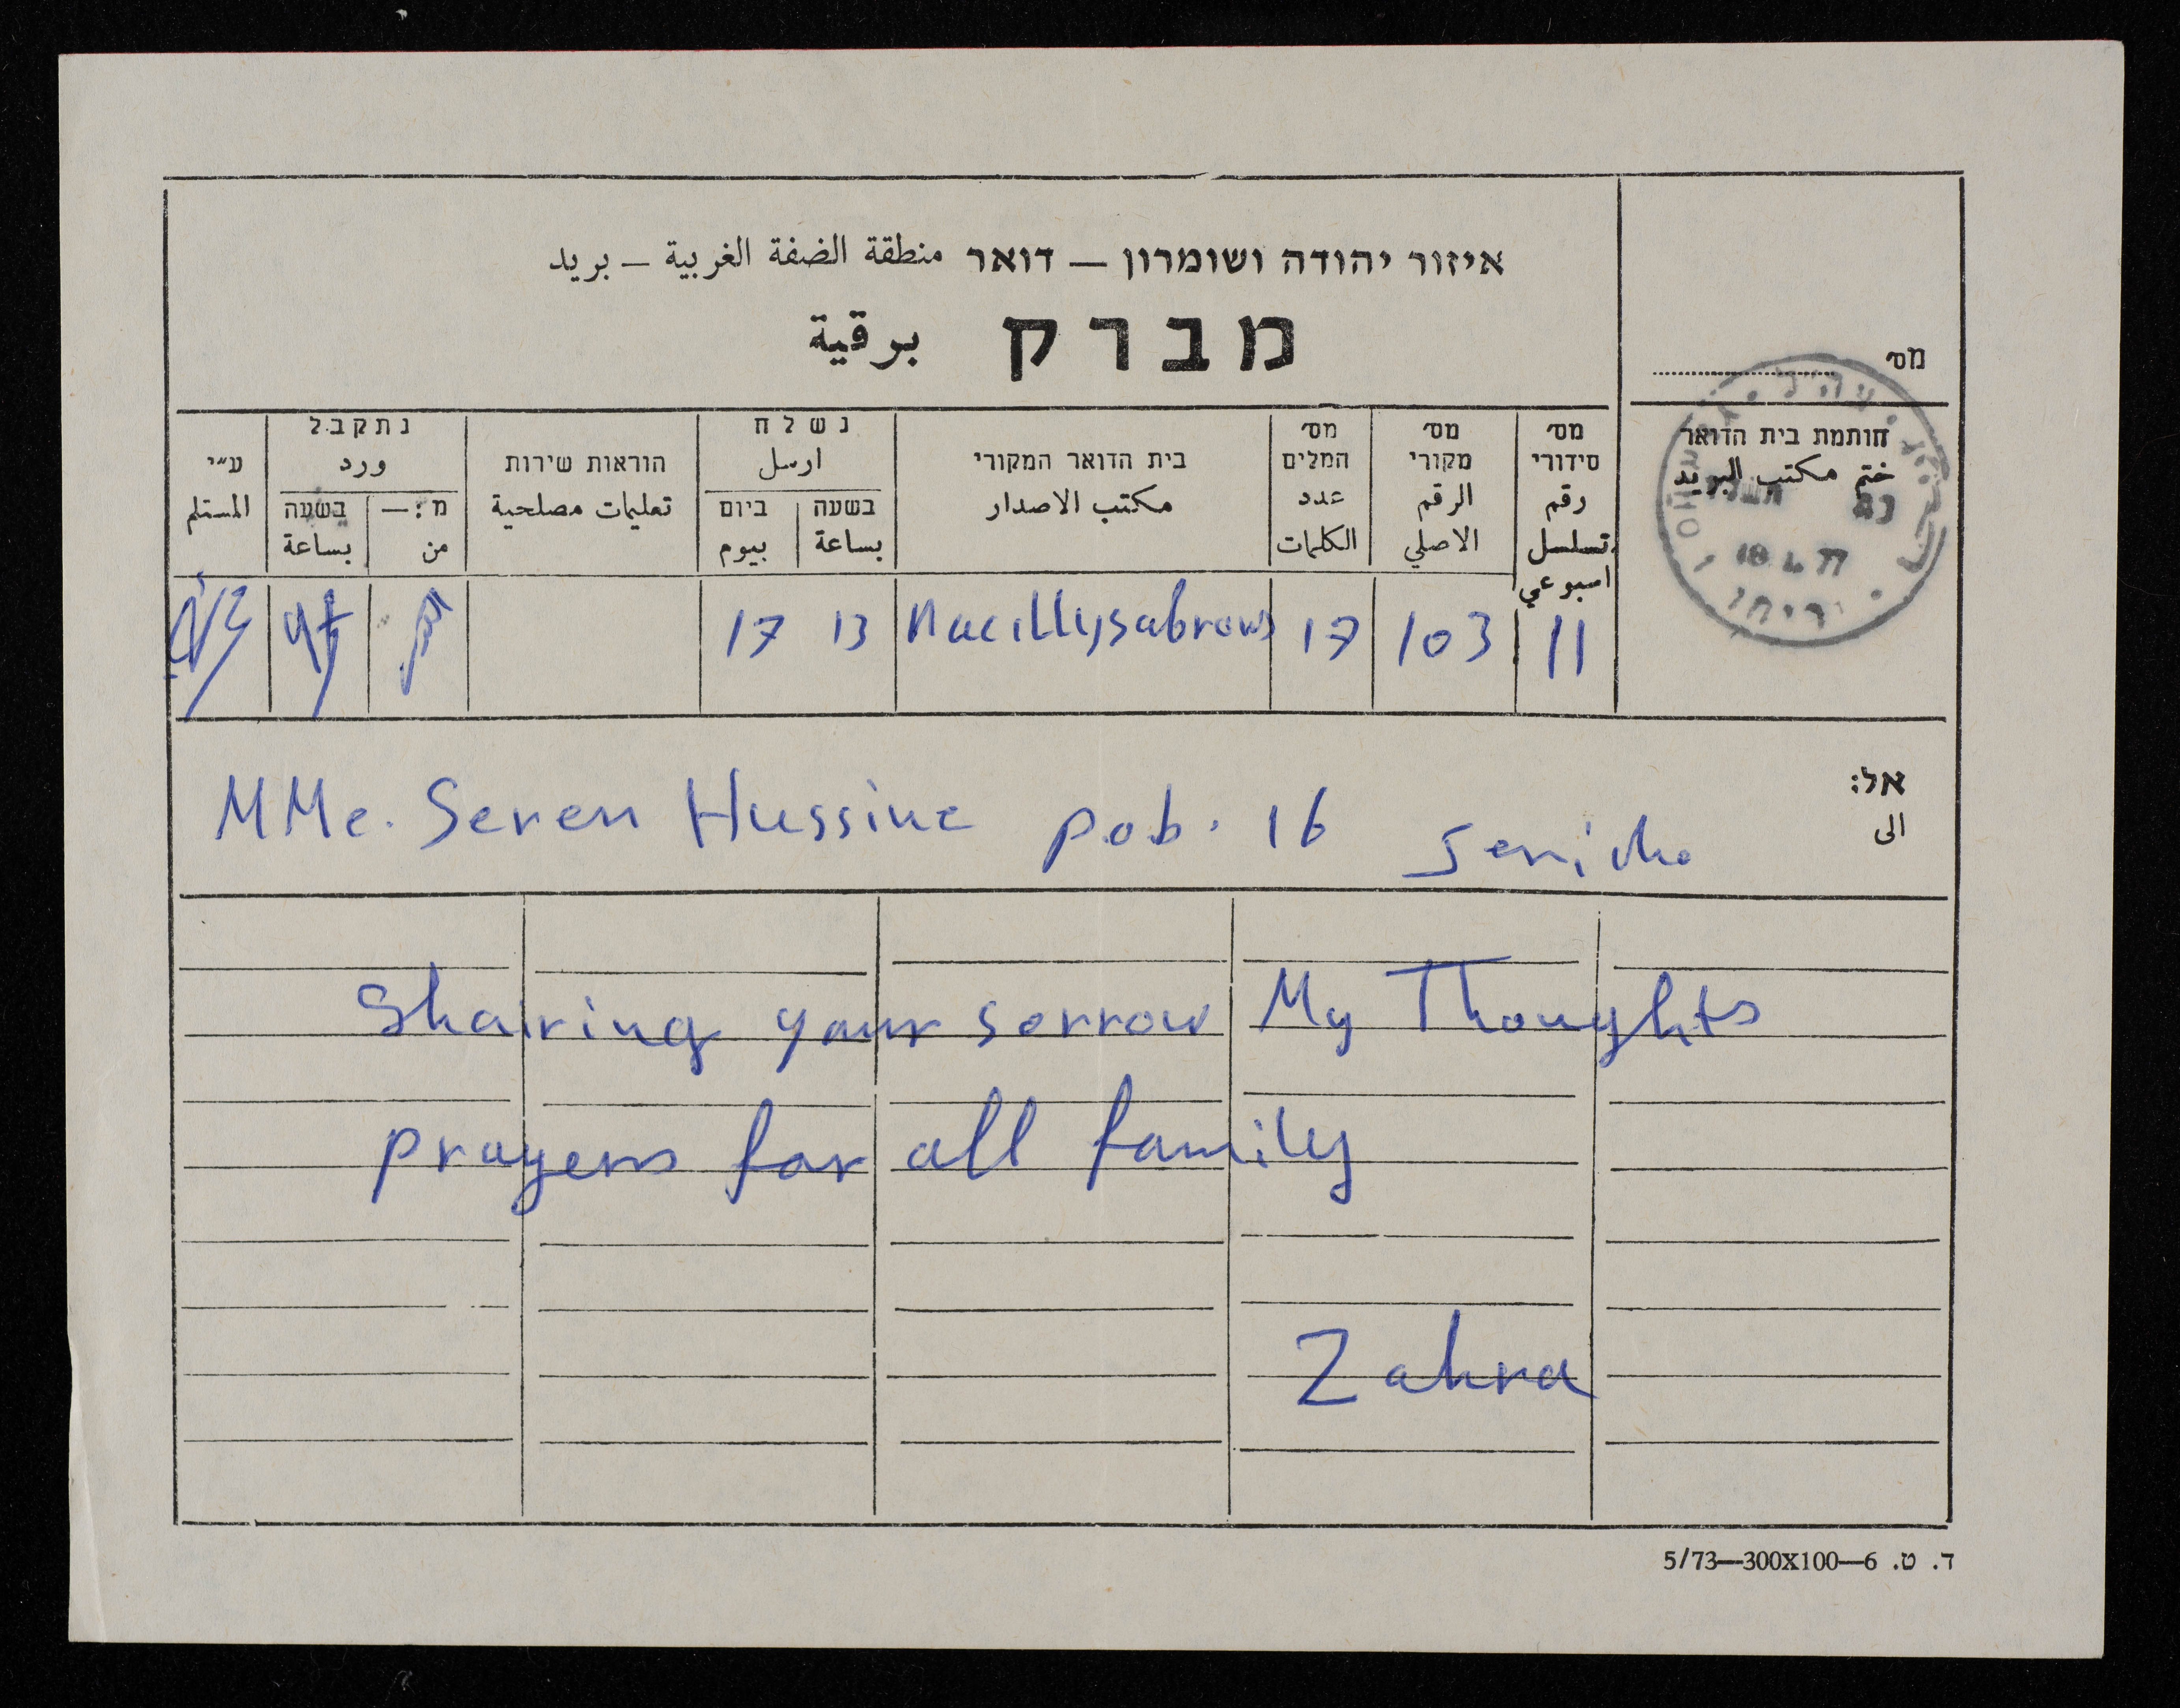 איזור יהודה ושומרון — דואר منطقة الضفة الغربية — بريد
מברק برقية
מס׳
חותמת בית הדואר
ختم مكتب البريد
18.4.77
יריחו
מס׳ סידורי رقم تسلسل اسبوعي
מס׳ מקורי الرقم الاصلي
מס׳ המלים عدد الكلمات
בית הדואר המקורי مكتب الاصدار
נשלח ارسل
בשעה بساعة
ביום بيوم
הוראות שירות تعليمات مصلحية
נתקבל ورد
מ:— من
בשעה بساعة
ע״י المستلم
11 103 17 13 17
אל:
الى
MMe. Seren Hussine p.o.b. 16 Jericho
Shairing your sorrow My Thoughts
prayers for all family
Zahra
ד. ט. 6—300X100—5/73